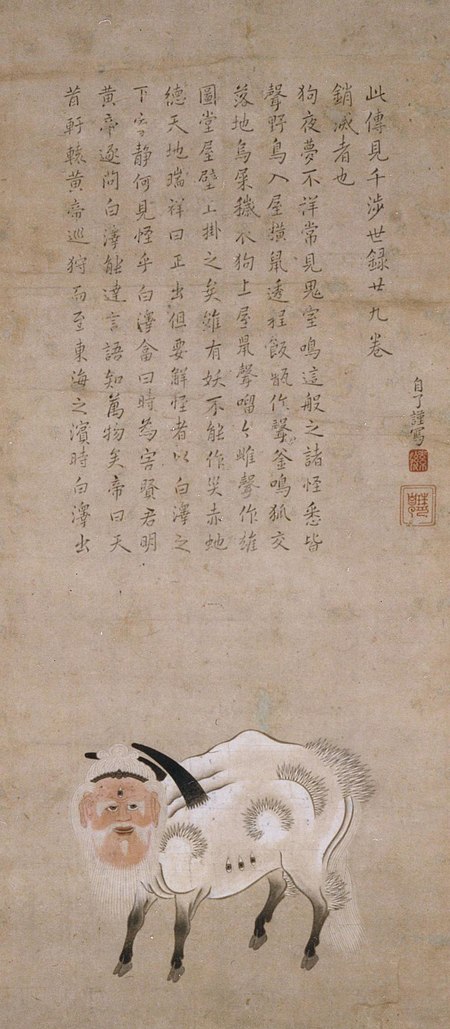 昔軒轅黄帝巡狩而至東海之濱時白澤出
黄帝遂問白澤能達言語知萬物矣帝曰天
下寧静何見怪乎白澤畣曰時為害賢君明
德天地瑞祥曰正出但要解怪者以白澤之
圖堂屋壁上掛之矣雖有妖不能作災赤虵
落地鳥屎穢衣狗上屋鼠聲嚠々雌聲作雄
聲野鳥入屋横鼠透程飯甑作聲釜鳴狐交
狗夜夢不洋常見鬼室鳴這般之諸怪悉皆
銷滅者也
此傳見千涉世録廿九卷
自了謹寫